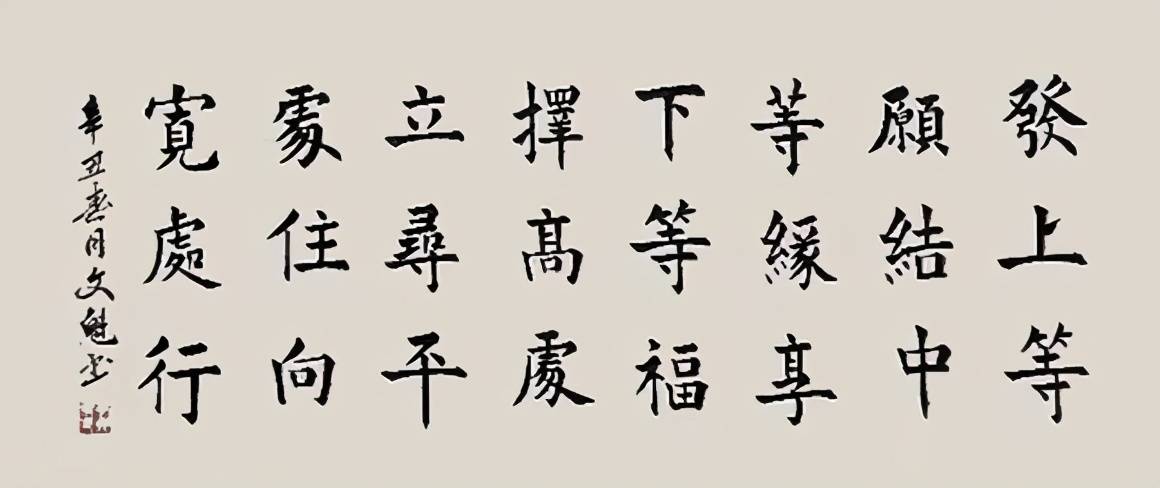 發上等
願結中
等緣享
下等福
擇高處
立尋平
處住向
寬處行
辛丑春月文魁書